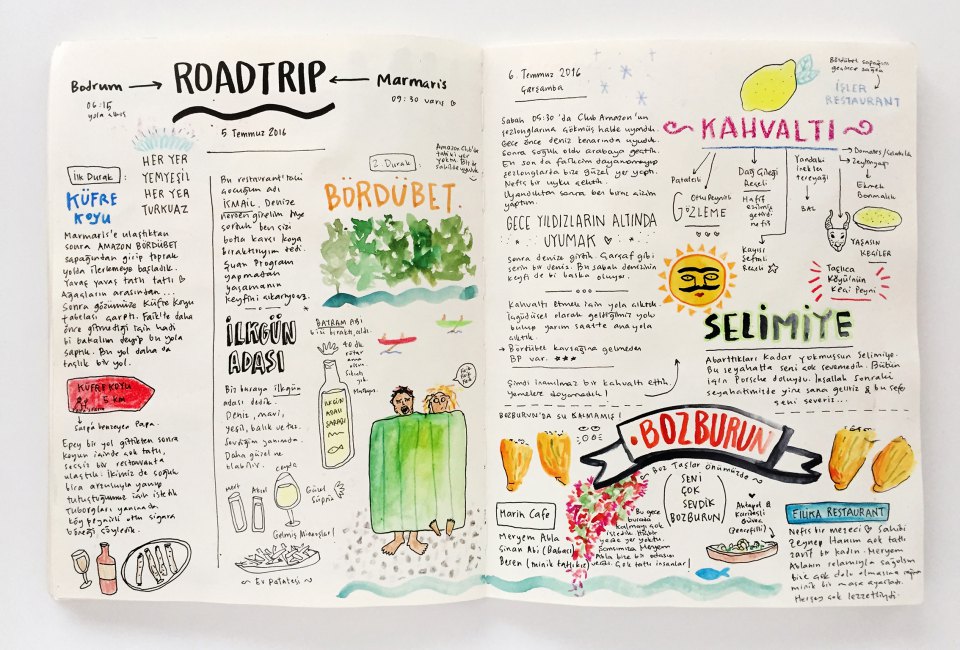 Bodrum → ROADTRIP ← Marmaris
06:15
yola çıkış
09:30 varış ♡
5 Temmuz 2016
HER YER
YEMYEŞİL
HER YER
TURKUAZ
İlk Durak:
KÜFRE
KOYU
Marmaris'e ulaştıktan
sonra AMAZON BÖRDÜBET
sapağından girip toprak
yolda ilerlemeye başladık.
Yavaş yavaş tatlı tatlı ♡
Ağaçların arasından...
Sonra gözümüze Küfre Koyu
tabelası çarptı. Faik'le daha
önce gitmediği için hadi
bi bakalım deyip bu yola
saptık. Bu yol daha da
taşlık bir yol.
KÜFRE KOYU
5 KM
Sarpa benzeyen Papa.
Epey bir yol gittikten sonra
koyun içinde çok tatlı,
sessiz bir restoranta
ulaştık. İkimiz de soğuk
bira arzusuyla yanıp
tutuştuğumuz için istedik
Tuborgları yanından
köy peynirli otlu sigara
böreği söyledik.
Bu restorant'taki
çocuğun adı
İSMAİL. Denize
nereden girelim diye
sorduk ben sizi
botla karşı koya
bıraktırıyım dedi.
Şuan Program
yapmadan
yaşamanın
keyfini çıkarıyoruz.
İLKGÜN
ADASI
Biz buraya ilkgün
adası dedik.
Deniz, mavi,
yeşil, balık ve tuz.
Sevdiğim yanımda.
Daha güzel ne
olabilir.
2. Durak:
Amazon Club'te
tabiki yer
yoktu. Biz de
sahilde uyuduk.
BÖRDÜBET
BAYRAM ABİ
bizi bıraktı, aldı.
İLKGÜN
ADASI
ŞARABI
Mert
Akcol
ceyda
Güzel
Süpriz
Gelmiş Minnoşlar!
~ Ev Patatesi ~
6. Temmuz 2016
Çarşamba
Sabah 05:30 'da Club Amazon'un
şezlonglarına gökmüş halde uyandık.
Gece önce deniz kenarında uyuduk.
Sonra soğuk oldu arabaya geçtik.
En son da faikcim dayanamayıp
şezlonglarda bize güzel yer yaptı.
Nefis bir uyku çektik.
Uyandıktan sonra ben birne azizim
yaptım.
GECE YILDIZLARIN ALTINDA
UYUMAK ♡
Sonra denize girdik. Çarşaf gibi
serin bir deniz. Bu sabah denizinin
keyfi de bi başka oluyor.
Kahvaltı etmek için yola çıktık.
İçgüdüsel olarak geldiğimiz yolu
bulup yarım saatte ana yola
çıktık.
→ Bördübet kavşağına gelmeden
BP var. ***
Şimdi inanılmaz bir kahvaltı ettik,
yemelere doyamadık!
Bördübet sapağını
geçince sağda
İŞLER
RESTAURANT
KAHVALTI
Patatcik
Otlu Peynirli
GÖZLEME
Dağ Çileği
Reçeli
Hafif
ekşimsi
getirdi
nefis
Kayısı
Şeftali
Reçeli ☆
Yandaki
inekten
tereyağı
BAL
→ Zeytinyağı
Ekmek
Banmalık
YAŞASIN
KEÇİLER
Taşlıca
Köyü'nün
Keçi Peyniri
SELİMİYE
Abarttıkları kadar yokmuşsun Selimiye.
Bu seyahatta seni çok sevemedik. Bütün
için Porsche doluydu. İnşallah sonraki
seyahatimizde yine sana geliriz & bu sefer
seni severiz...
BOZBURUN'DA SU KALMAMIŞ!
BOZBURUN
~ Boz Taşlar Önümüzde ~
SENİ
ÇOK
SEVDİK
BOZBURUN
Marin Cafe
Meryem Abla
Sinan Abi (Babacı)
Beren (minik tatlıkız)
Bu gece
burada
kalmayı çok
istedik. Hiçbir
yerde yer yoktu.
Şansımıza Meryem
Abla bize bir odasını
verdi. Çok tatlı insanlar!
Ahtapot &
Karidesli
Güveç
FİLİKA RESTAURANT
Nefis bir mezeci ♡ Sahibi
Zeynep Hanım çok tatlı
zarif bir kadın. Meryem
Ablanın selamıyla sağolsun
bize çok dolu olmasına rağmen
minik bir masa ayarladı.
Herşey çok lezzetliydi.